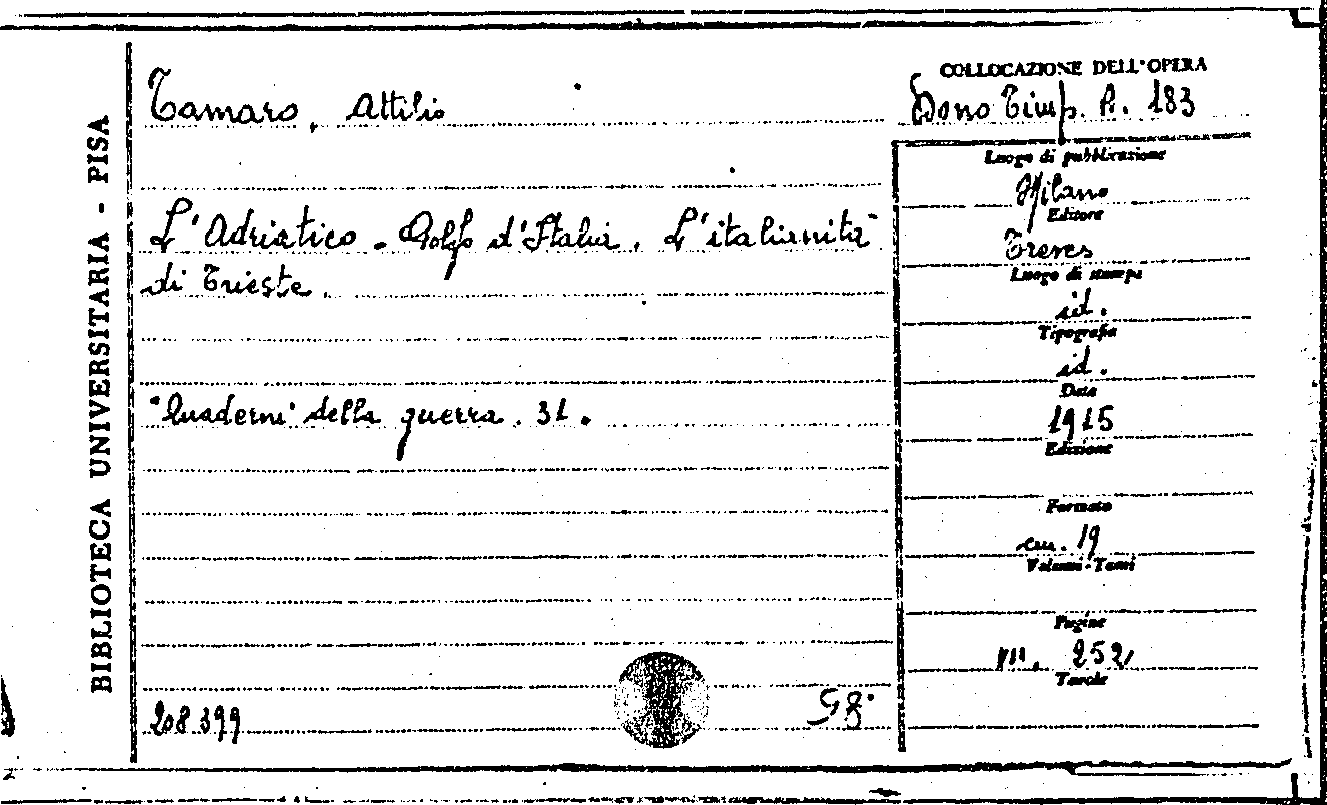 BIBLIOTECA UNIVERSITARIA - PISA
Tamaro, Attilio
L'Adriatico - Golfo d'Italia. L'italianità
di Trieste.
"Quaderni della guerra. 31.
208399
COLLOCAZIONE DELL'OPERA
Dono Timp. R. 183
Luogo di pubblicazione
Milano
Editore
Treves
Luogo di stampa
id.
Tipografia
id.
Data
1915
Edizione
Formato
cm. 19
Volumi - Tomi
Pagine
VII. 252
Tavole